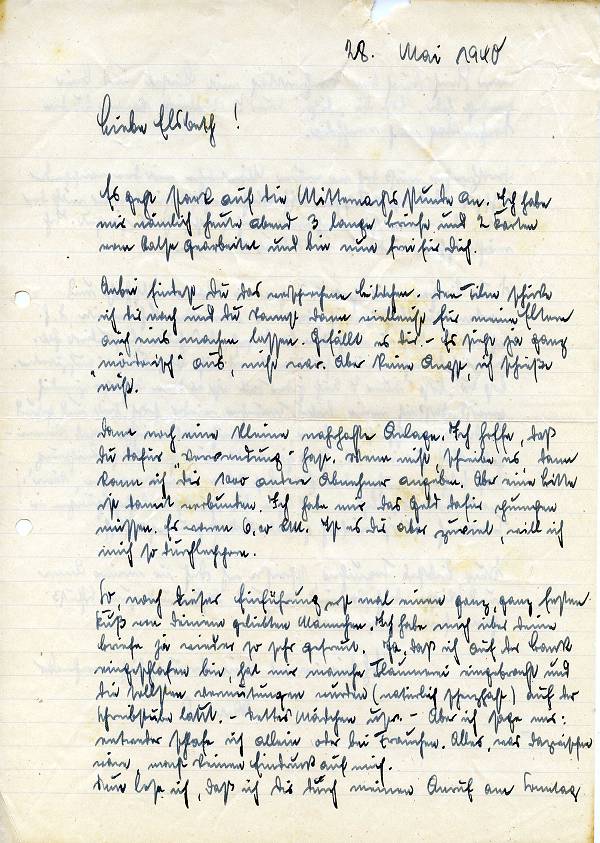 28. Mai 1940
Liebe Elsbeth!
Es geht stark auf die Mitternachtsstunde an. Ich habe
mir nämlich heute abend 3 lange briefe und 2 Karten
vom Halse gearbeitet und bin nun frei für Dich.
Anbei findest Du das versprochene bildchen. Den Film schicke
ich dir noch und du kannst dann vielleicht für meine Eltern
auch eins machen lassen. Gefällt es dir. - Es sieht ja ganz
"mörderisch" aus, nicht war. Aber keine Angst, ich schieße
nicht.
Dann noch eine kleine nahrhafte Anlage. Ich hoffe, daß
Du dafür "Verwendung" hast. Wenn nicht schreibe es, dann
kann ich dir 100 andere Abnehmer angeben. Aber eine bitte
ist damit verbunden. Ich habe mir das Geld dafür pumpen
müssen. Es waren 6,20 RM. Ist es Dir aber zuviel, will ich
mich so durchschlagen.
So, nach dieser Einführung erst mal einen ganz, ganz festen
Kuß von deinem geliebten Männchen. Ich habe mich über deine
briefe ja wieder so sehr gefreut. Ja, daß ich auf der bank
eingeschlafen bin, hat mir manche Flaumerei eingebracht und
die tollsten Vermutungen wurden (natürlich scherzhaft) auf der
Schreibstube laut. - Nettes Mädchen usw. - Aber ich sage nur:
entweder schlafe ich allein oder bei Frauchen. Alles, was dazwischen
wäre, macht keinen Eindruck auf mich.
Nun lese ich, daß ich dich durch meinen Anruf am Sonntag